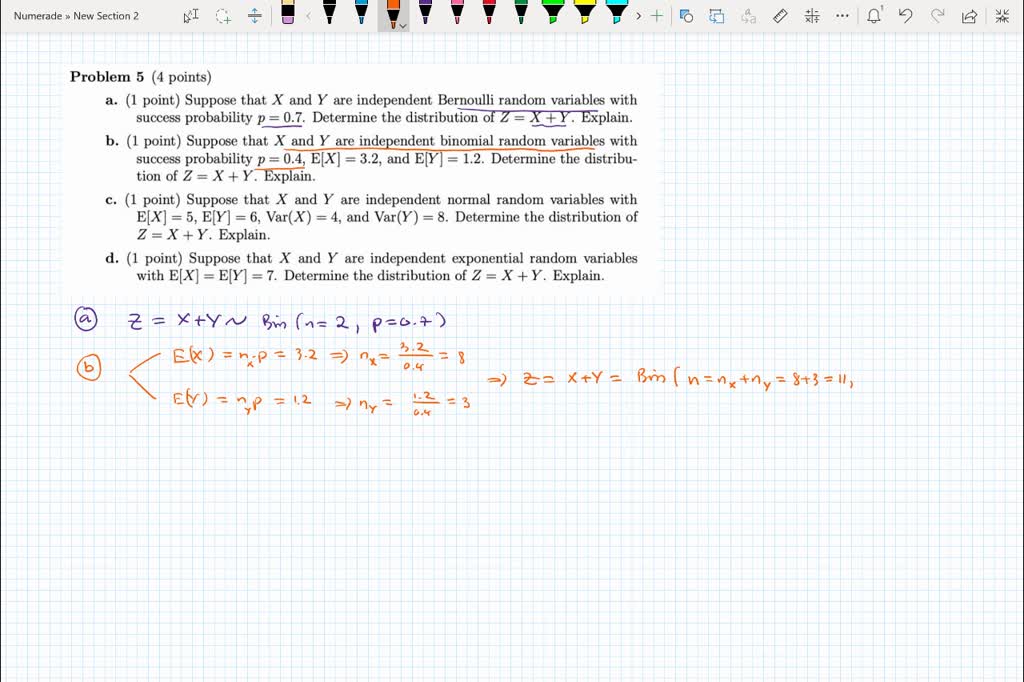 Numerade » New Section 2
Problem 5 (4 points)
a. (1 point) Suppose that X and Y are independent Bernoulli random variables with
success probability p = 0.7. Determine the distribution of Z = X + Y. Explain.
b. (1 point) Suppose that X and Y are independent binomial random variables with
success probability p = 0.4, E[X] = 3.2, and E[Y] = 1.2. Determine the distribu-
tion of Z = X + Y. Explain.
c. (1 point) Suppose that X and Y are independent normal random variables with
E[X] = 5, E[Y] = 6, Var(X) = 4, and Var(Y) = 8. Determine the distribution of
Z = X + Y. Explain.
d. (1 point) Suppose that X and Y are independent exponential random variables
with E[X] = E[Y] = 7. Determine the distribution of Z = X + Y. Explain.
ⓐ Z = X+Y ~ Bin (n= 2, p=0.7)
ⓑ E(X) = nₓ.p = 3.2 ⇒ nₓ = 3.2/0.4 = 8
E(Y) = n_y p = 1.2 ⇒ n_y = 1.2/0.4 = 3
⇒ Z = X+Y = Bin ( n=nₓ+n_y = 8+3 = 11,